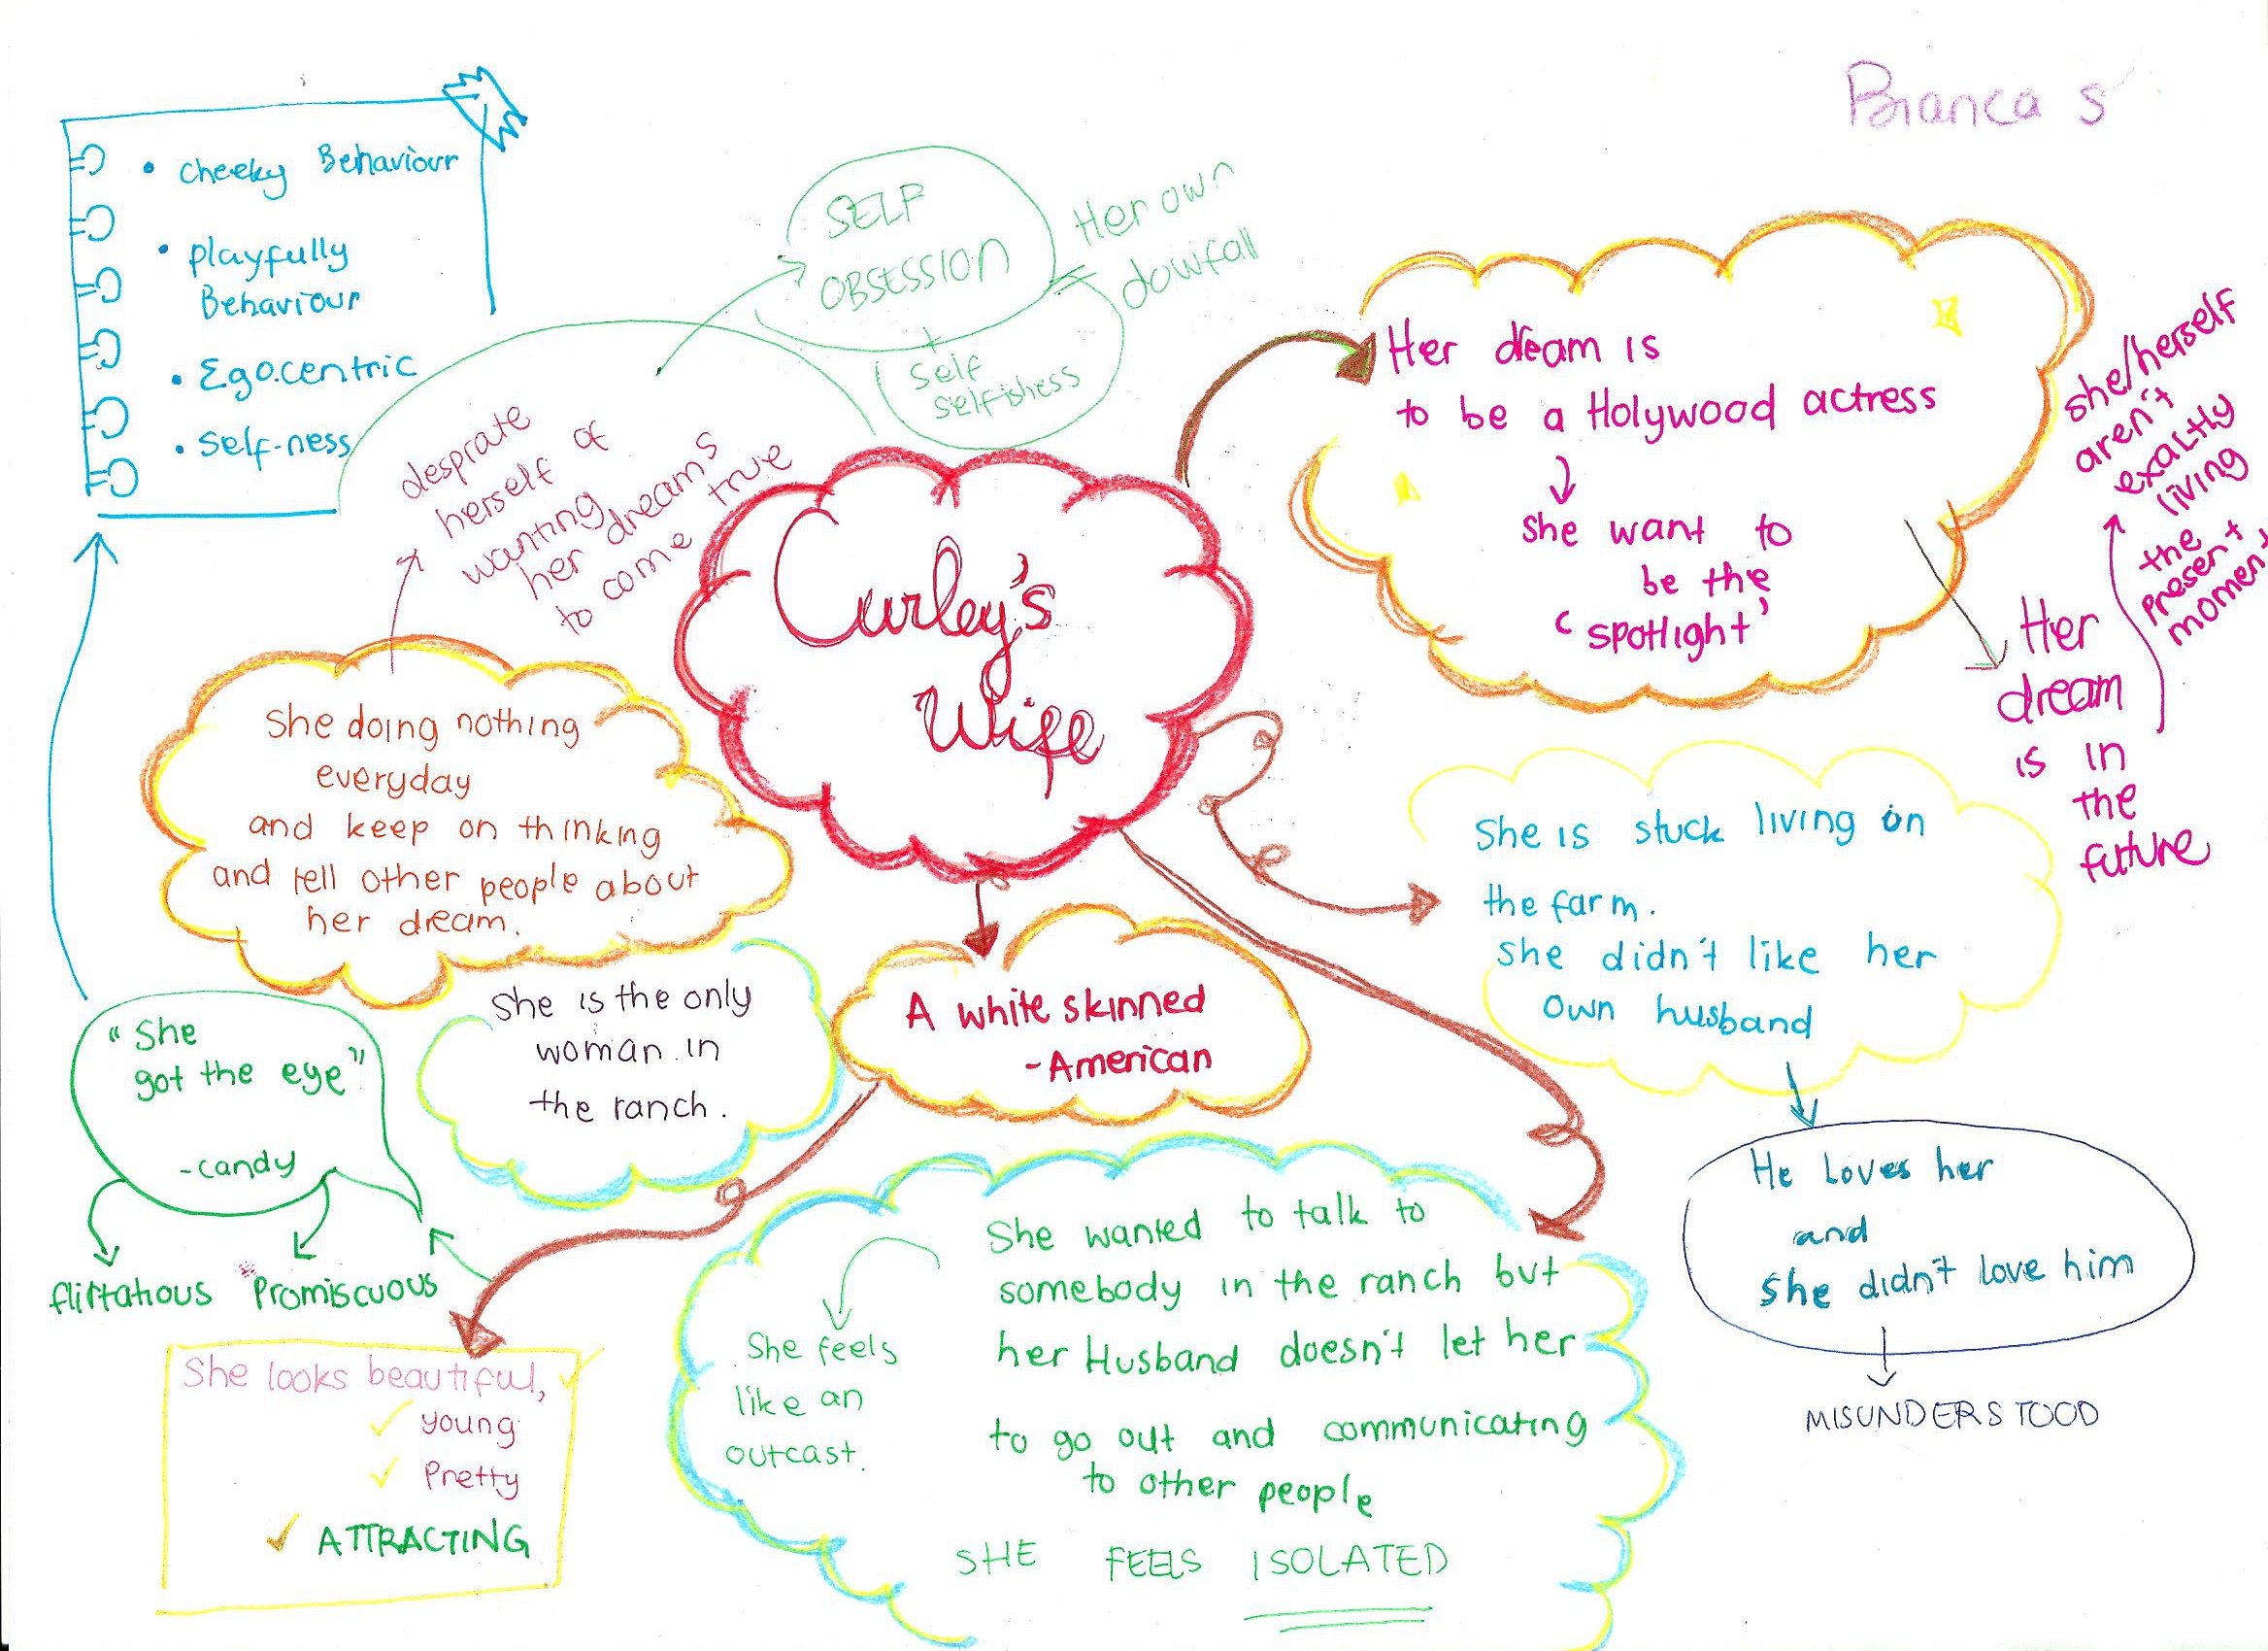 Bianca S
• Cheeky Behaviour
• Playfully
Behaviour
• Egocentric
• Self-ness
SELF
OBSESSION
+
Self
selfishess
Her own
dowfall
desprate
herself of
wanting
her dreams
to come true
Curley's
Wife
Her dream is
to be a Holywood actress
She want to
be the
'spotlight'
Her
dream
is in
the
future
she/herself
aren't
exaltly
living
the
present
moment
She doing nothing
everyday
and keep on thinking
and tell other people about
her dream.
She is stuck living on
the farm.
She didn't like her
own husband
He Loves her
and
She didn't love him
MISUNDERSTOOD
"She
got the eye"
-candy
flirtatious
Promiscuous
She is the only
woman in
the ranch.
A white skinned
-American
She looks beautiful,
young
Pretty
ATTRACTING
She wanted to talk to
somebody in the ranch but
her Husband doesn't let her
to go out and communicating
to other people
She feels
like an
outcast.
SHE FEELS ISOLATED